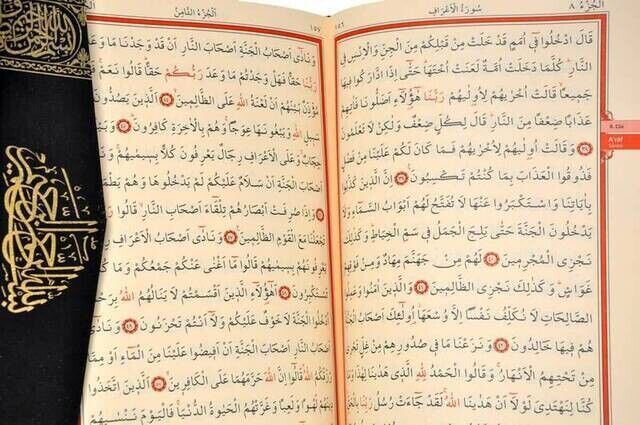 اَلْجُزْءُ ٨
سُورَةُ الْاَعْرَافِ
قَالَ ادْخُلُوا فٖٓي اُمَمٍ قَدْ خَلَتْ مِنْ قَبْلِكُمْ مِنَ الْجِنِّ وَالْاِنْسِ فِي
النَّارِ كُلَّمَا دَخَلَتْ اُمَّةٌ لَعَنَتْ اُخْتَهَا حَتّٰٓى اِذَا ادَّارَكُوا فٖيهَا
جَمٖيعًا قَالَتْ اُخْرٰيهُمْ لِاُولٰيهُمْ رَبَّنَا هٰٓؤُلَٓاءِ اَضَلُّونَا فَاٰتِهِمْ
عَذَابًا ضِعْفًا مِنَ النَّارِ قَالَ لِكُلٍّ ضِعْفٌ وَلٰكِنْ لَا تَعْلَمُونَ
٣٨ وَقَالَتْ اُولٰيهُمْ لِاُخْرٰيهُمْ فَمَا كَانَ لَكُمْ عَلَيْنَا مِنْ فَضْلٍ
فَذُوقُوا الْعَذَابَ بِمَا كُنْتُمْ تَكْسِبُونَ ٣٩ اِنَّ الَّذٖينَ كَذَّبُوا
بِاٰيَاتِنَا وَاسْتَكْبَرُوا عَنْهَا لَا تُفَتَّحُ لَهُمْ اَبْوَابُ السَّمَٓاءِ وَلَا
يَدْخُلُونَ الْجَنَّةَ حَتّٰى يَلِجَ الْجَمَلُ فٖي سَمِّ الْخِيَاطِ وَكَذٰلِكَ
نَجْزِي الْمُجْرِمٖينَ ٤٠ لَهُمْ مِنْ جَهَنَّمَ مِهَادٌ وَمِنْ فَوْقِهِمْ
غَوَاشٍ وَكَذٰلِكَ نَجْزِي الظَّالِمٖينَ ٤١ وَالَّذٖينَ اٰمَنُوا وَعَمِلُوا
الصَّالِحَاتِ لَا نُكَلِّفُ نَفْسًا اِلَّا وُسْعَهَا اُولٰٓئِكَ اَصْحَابُ الْجَنَّةِ
هُمْ فٖيهَا خَالِدُونَ ٤٢ وَنَزَعْنَا مَا فٖي صُدُورِهِمْ مِنْ غِلٍّ تَجْرٖي
مِنْ تَحْتِهِمُ الْاَنْهَارُ وَقَالُوا الْحَمْدُ لِلّٰهِ الَّذٖي هَدٰينَا لِهٰذَا وَمَا
كُنَّا لِنَهْتَدِيَ لَوْلَٓا اَنْ هَدٰينَا اللّٰهُ لَقَدْ جَٓاءَتْ رُسُلُ رَبِّنَا بِالْحَقِّ
8. Cüz
A'râf
Sûresi
اَلْجُزْءُ الثَّامِنُ
وَنَادٰٓى اَصْحَابُ الْجَنَّةِ اَصْحَابَ النَّارِ اَنْ قَدْ وَجَدْنَا مَا وَعَدَنَا
رَبُّنَا حَقًّا فَهَلْ وَجَدْتُمْ مَا وَعَدَ رَبُّكُمْ حَقًّا قَالُوا نَعَمْ
مُؤَذِّنٌ بَيْنَهُمْ اَنْ لَعْنَةُ اللّٰهِ عَلَى الظَّالِمٖينَ ٤٤ اَلَّذٖينَ يَصُدُّونَ
سَبٖيلِ اللّٰهِ وَيَبْغُونَهَا عِوَجًا وَهُمْ بِالْاٰخِرَةِ كَافِرُونَ ٤٥
حِجَابٌ وَعَلَى الْاَعْرَافِ رِجَالٌ يَعْرِفُونَ كُلًّا بِسٖيمٰيهُمْ وَنَادَوْا
اَصْحَابَ الْجَنَّةِ اَنْ سَلَامٌ عَلَيْكُمْ لَمْ يَدْخُلُوهَا وَهُمْ يَطْمَعُونَ
٤٦ وَاِذَا صُرِفَتْ اَبْصَارُهُمْ تِلْقَٓاءَ اَصْحَابِ النَّارِ قَالُوا رَبَّنَا
تَجْعَلْنَا مَعَ الْقَوْمِ الظَّالِمٖينَ ٤٧ وَنَادٰٓى اَصْحَابُ الْاَعْرَافِ
يَعْرِفُونَهُمْ بِسٖيمٰيهُمْ قَالُوا مَٓا اَغْنٰى عَنْكُمْ جَمْعُكُمْ وَمَا كُنْتُمْ
تَسْتَكْبِرُونَ ٤٨ اَهٰٓؤُلَٓاءِ الَّذٖينَ اَقْسَمْتُمْ لَا يَنَالُهُمُ اللّٰهُ بِرَحْمَةٍ
اُدْخُلُوا الْجَنَّةَ لَا خَوْفٌ عَلَيْكُمْ وَلَٓا اَنْتُمْ تَحْزَنُونَ ٤٩ وَنَادٰٓى
اَصْحَابُ النَّارِ اَصْحَابَ الْجَنَّةِ اَنْ اَفٖيضُوا عَلَيْنَا مِنَ الْمَٓاءِ اَوْ مِمَّا
رَزَقَكُمُ اللّٰهُ قَالُٓوا اِنَّ اللّٰهَ حَرَّمَهُمَا عَلَى الْكَافِرٖينَ ٥٠ اَلَّذٖينَ اتَّخَذُوا
دٖينَهُمْ لَهْوًا وَلَعِبًا وَغَرَّتْهُمُ الْحَيٰوةُ الدُّنْيَا فَالْيَوْمَ نَنْسٰيهُمْ